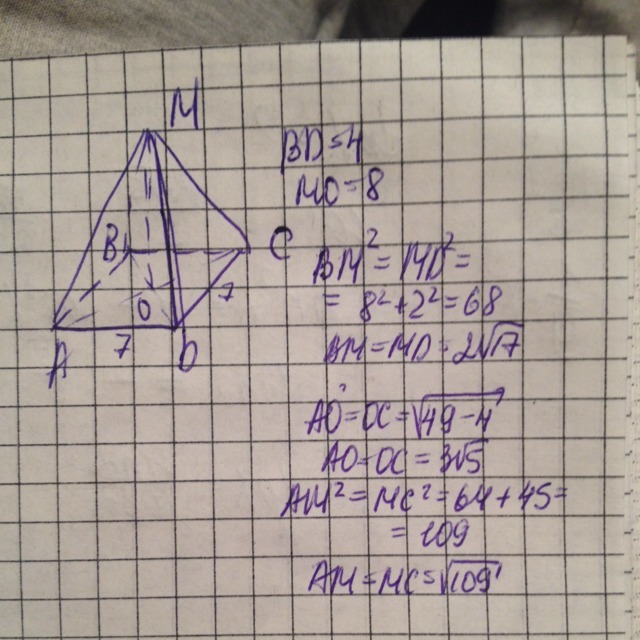 M
B
C
O
7
A
7
D
BD=4
MO=8
BM²=MD²=
= 8²+2²=68
BM=MD=2√17
AO=OC=√49-4
AO=OC=3√5
AM²=MC²=64+45=
=109
AM=MC=√109